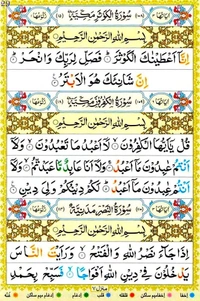 سُورَةُ الْكَوْثَرِ مَكِّيَّةٌ
بِسْمِ اللهِ الرَّحْمٰنِ الرَّحِيْمِ
اِنَّاۤ اَعْطَيْنٰكَ الْكَوْثَرَ فَصَلِّ لِرَبِّكَ وَانْحَرْ
اِنَّ شَانِئَكَ هُوَ الْاَبْتَرُ
سُورَةُ الْكٰفِرُوْنَ مَكِّيَّةٌ
بِسْمِ اللهِ الرَّحْمٰنِ الرَّحِيْمِ
قُلْ يٰۤاَيُّهَا الْكٰفِرُوْنَ لَاۤ اَعْبُدُ مَا تَعْبُدُوْنَ وَلَاۤ
اَنْتُمْ عٰبِدُوْنَ مَاۤ اَعْبُدُ وَلَاۤ اَنَا عَابِدٌ مَّا عَبَدْتُّمْ وَلَاۤ
اَنْتُمْ عٰبِدُوْنَ مَاۤ اَعْبُدُ لَكُمْ دِيْنُكُمْ وَلِيَ دِيْنِ
سُورَةُ النَّصْرِ مَدَنِيَّةٌ
بِسْمِ اللهِ الرَّحْمٰنِ الرَّحِيْمِ
اِذَا جَآءَ نَصْرُ اللهِ وَالْفَتْحُ وَرَاَيْتَ النَّاسَ
يَدْخُلُوْنَ فِيْ دِيْنِ اللهِ اَفْوَاجًا فَسَبِّحْ بِحَمْدِ